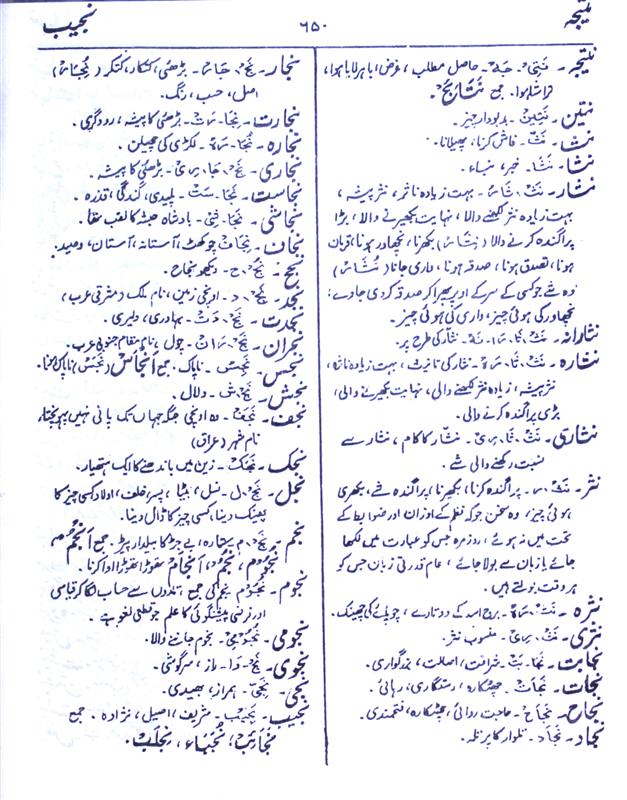 نتیجہ
۶۵۰
نجیب
نتیجہ۔ نَتِیْ۔جَہْ۔ حاصل مطلب، غرض، باہر لایا ہوا،
تراشا ہوا۔ جمع نَتَائِجْ۔
نتین۔ نَتِیْنْ۔ بدبودار چیز۔
نث۔ نَثّ۔ فاش کرنا، پھیلانا۔
نثا۔ نَثَا۔ خبر،
نثار۔ نَثْ۔ثَارْ۔ بہت زیادہ ناثر، نثر پیشہ،
بہت زیادہ نثر لکھنے والا، نہایت بکھیرنے والا، بڑا
پراگندہ کرنے والا (نِثَارْ) بکھرنا، نچھاور ہونا، قربان
ہونا، تصدق ہونا، صدقہ ہونا، واری جانا (نُثَارْ)
وہ شے جو کسی کے سر کے اوپر پھیرا کر صدقہ کر دی جاوے،
نچھاور کی ہوئی چیز، واری گئی ہوئی چیز۔
نثارانہ۔ نَثْ۔ثَا۔رَا۔نَہْ۔ نثار کی طرح پر۔
نثارہ۔ نَثْ۔ثَا۔رَہْ۔ نثار کی تانیث، بہت زیادہ ناثرہ،
نثر پیشہ، زیادہ نثر لکھنے والی، نہایت بکھیرنے والی،
بڑی پراگندہ کرنے والی۔
نثاری۔ نَثْ۔ثَا۔رِیْ۔ نثار کا کام، نثار سے
نسبت رکھنے والی شے۔
نثر۔ نَثْ۔ر۔ پراگندہ کرنا، بکھیرنا، پراگندہ شے، بکھری
ہوئی چیز، وہ سخن جو کہ نظم کے اوزان اور ضوابط کے
تحت میں نہ ہوئے، روزمرہ جس کو عبارت میں لکھا
جائے یا زبان سے بولا جائے، عام قدرتی زبان جس کو
ہر وقت بولتے ہیں۔
نثرہ۔ نَثْ۔رَہْ۔ برج اسد کے دو تارے، چوپائے کی چھینک۔
نثری۔ نَثْ۔رِیْ۔ منسوب نثر۔
نجابت۔ نَجَا۔بَتْ۔ شرافت، اصالت، بزرگواری۔
نجات۔ نَجَاتْ۔ چھٹکارہ، رستگاری، رہائی۔
نجاح۔ نَجَاحْ۔ حاجت روائی، چھٹکارہ، فتحمندی۔
نجاد۔ نِجَادْ۔ تلوار کا پرتلہ۔
نجار۔ نَجْ۔جَارْ۔ بڑھئی، (نُجَارْ)
اصل، حسب، رنگ۔
نجارت۔ نِجَا۔رَتْ۔ بڑھئی کا پیشہ، درودگری۔
نجارہ۔ نُجَا۔رَہْ۔ لکڑی کی چھیلن۔
نجاری۔ نَجْ۔جَا۔رِیْ۔ بڑھئی کا پیشہ۔
نجاست۔ نَجَا۔سَتْ۔ پلیدی، گندگی،
نجاشی۔ نَجَا۔شِیْ۔ بادشاہ حبشہ کا لقب تھا۔
نجاف۔ نِجَافْ۔ چوکھٹ، آستانہ، آستان، وصید۔
نجح۔ نُجْ۔ح۔ دیکھو نجاح۔
نجد۔ نَجْ۔د۔ اونچی زمین، نام ملک (مشرقی عرب)
نجدت۔ نَجْ۔دَتْ۔ بہادری، دلیری۔
نجران۔ نَجْ۔رَانْ۔ چول، نام مقام جنوبی عرب۔
نجس۔ نَجِسْ۔ ناپاک۔ جمع اَنْجَاسْ (نَجَسْ) ناپاک ہونا۔
نجش۔ نَجْ۔ش۔ دلال۔
نجف۔ نَجَفْ۔ وہ اونچی جگہ جہاں تک پانی نہیں پہونچتا،
نام شہر (عراق)
نجک۔ نَجَکْ۔ زین میں باندھنے کا ایک ہتھیار۔
نجل۔ نَجْ۔ل۔ نسل، بیٹا، پسر، خلف، اولاد کسی چیز کا
پھینک دینا، کسی چیز کا ڈال دینا۔
نجم۔ نَجْ۔م۔ ستارہ، بے جڑ کا بیلدار پیڑ۔ جمع اَنْجُمْ،
نُجُوْمْ، نُجُمْ، اَنْجَامْ تھوڑا تھوڑا ادا کرنا۔
نجوم۔ نُجُوْمْ۔ نجم کی جمع، تاروں سے حساب لگا کر قیاسی
اور فرضی پیشنگوئی کا علم جو قطعی لغو ہے۔
نجومی۔ نُجُوْمِیْ۔ نجوم جاننے والا۔
نجوی۔ نَجْ۔وَا۔ راز، سرگوشی۔
نجی۔ نَجِیّ۔ ہمراز، بھیدی۔
نجیب۔ نَجِیْبْ۔ شریف، اصیل، نژادہ۔ جمع
نَجَائِبْ، نُجَبَاء، نُجَبْ۔